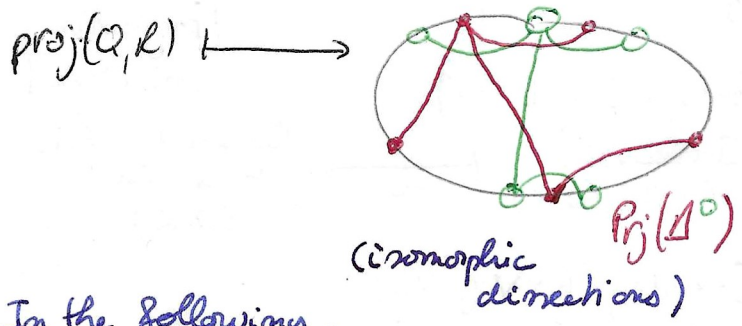 proj(Q,R) ⟼
Prj(Δ°)
(isomorphic
dissections)
In the following